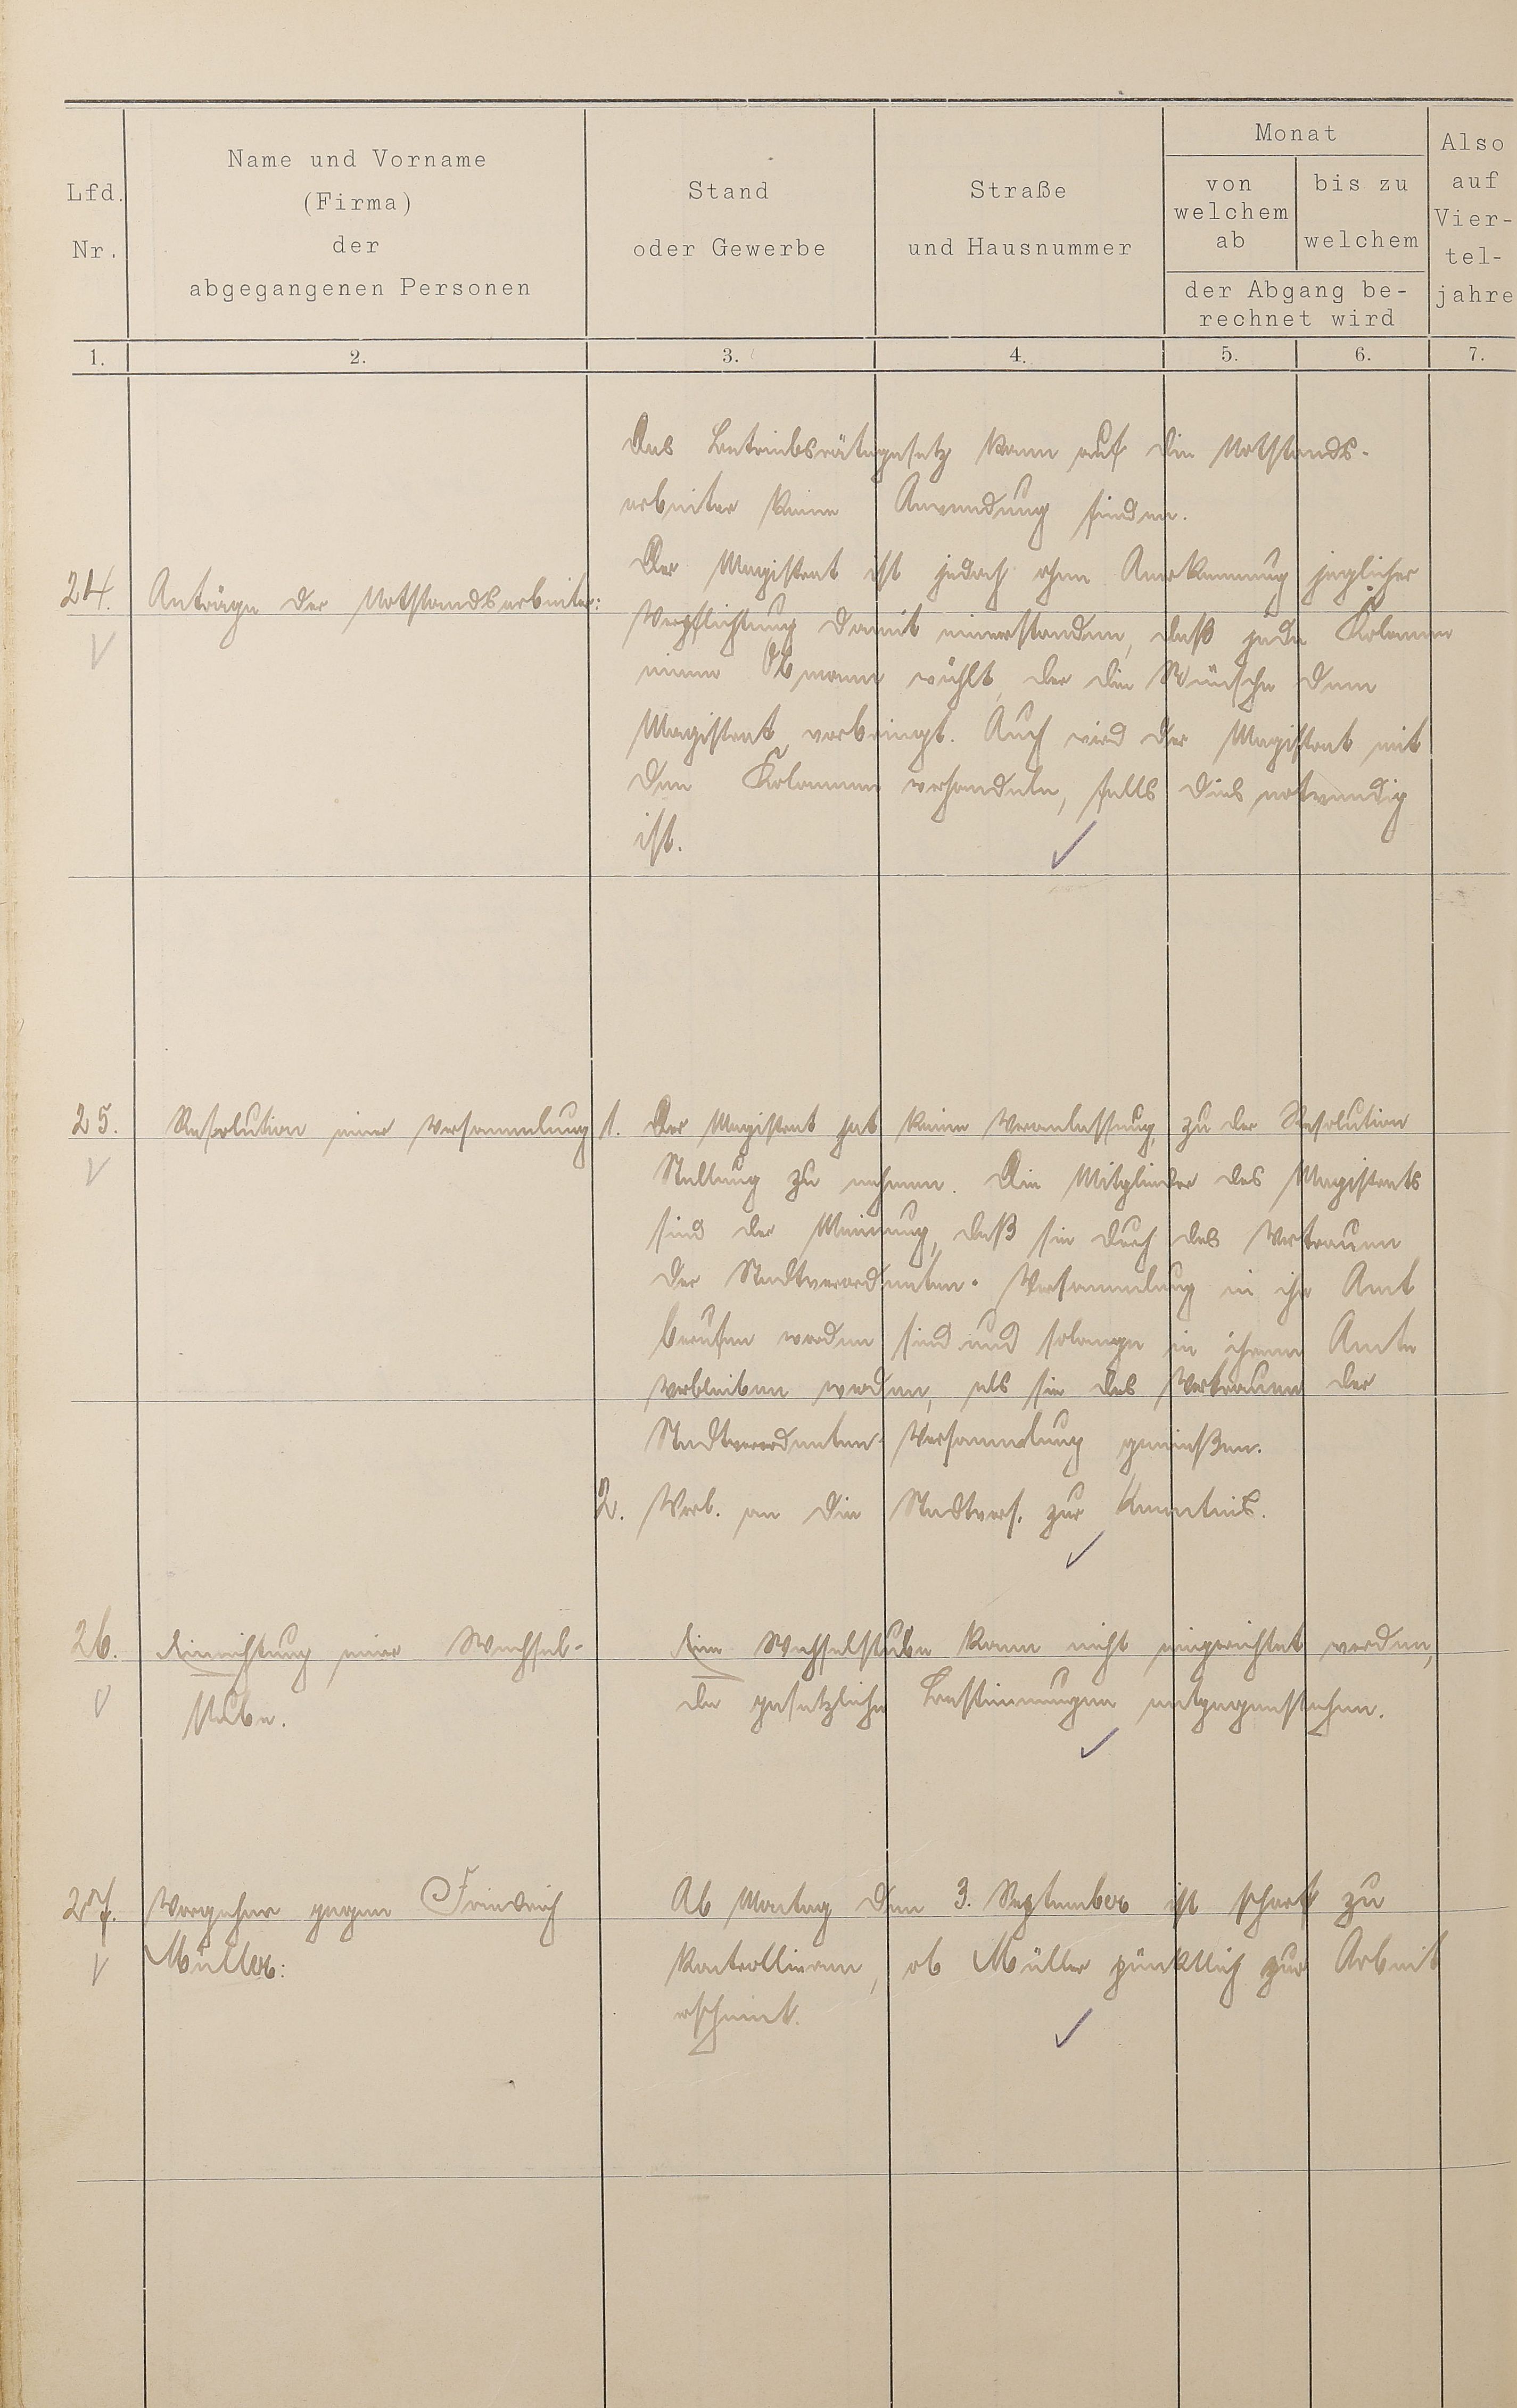 Lfd.
Nr.
Name und Vorname
(Firma)
der
abgegangenen Personen
Stand
oder Gewerbe
Straße
und Hausnummer
Monat
von
welchem
ab
bis zu
welchem
der Abgang be-
rechnet wird
Also
auf
Vier-
tel-
jahre
1. 2. 3. 4. 5. 6. 7.
Das Betriebsrätegesetz kann auf die Notstands-
arbeiter keine Anwendung finden.
24. Anträge der Notstandsarbeiter:
Der Magistrat ist jedoch ohne Anerkennung jeglicher
Verpflichtung damit einverstanden, daß jede Kolonne
einen Obmann wählt, der die Wünsche dem
Magistrat vorbringt. Auch wird der Magistrat mit
den Kolonnen verhandeln, falls dies notwendig
ist.
25. Resolution einer Versammlung
1. Der Magistrat hat keine Veranlassung, zu der Resolution
Stellung zu nehmen. Die Mitglieder des Magistrats
sind der Meinung, daß sie durch das Vertrauen
der Stadtverordneten-Versammlung in ihr Amt
berufen worden sind und solange in ihrem Amte
verbleiben werden, als sie das Vertrauen der
Stadtverordneten-Versammlung genießen.
2. Vorl. an die Stadtvers. zur Kenntnis.
26. Einrichtung einer Wechsel-
stube.
Eine Wechselstube kann nicht eingerichtet werden,
da gesetzliche Bestimmungen entgegenstehen.
27. Vorgehen gegen Friedrich
Müller:
Ab Montag den 3. September ist scharf zu
kontrollieren, ob Müller pünktlich zur Arbeit
erscheint.